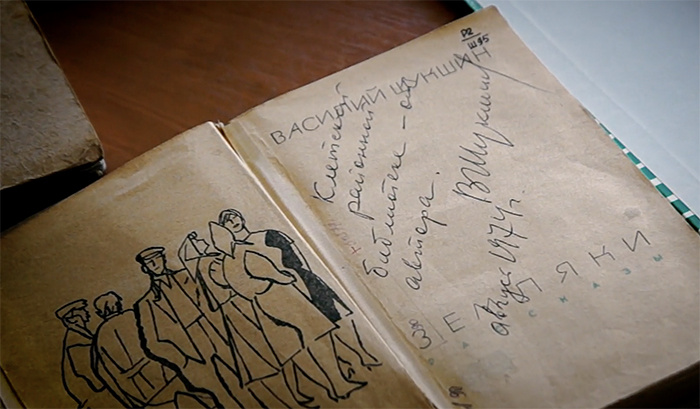 Р2
Ш95
ВАСИЛИЙ ШУКШИН
Клетской
районной
библиотеке – от
автора.
ВШукшин
август 1974 г.
ЗЕМЛЯКИ